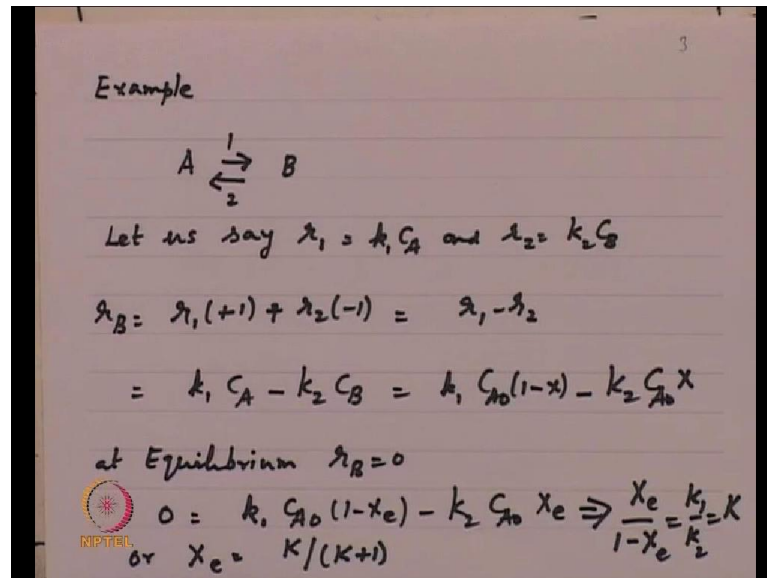 3
Example
1
A ⇄ B
2
Let us say r₁ = k₁ C_A and r₂ = k₂ C_B
r_B = r₁(+1) + r₂(-1) = r₁ - r₂
= k₁ C_A - k₂ C_B = k₁ C_A0 (1-x) - k₂ C_A0 X
at Equilibrium r_B = 0
0 = k₁ C_A0 (1-Xe) - k₂ C_A0 Xe ⇒ Xe/(1-Xe) = k₁/k₂ = K
or Xe = K/(K+1)
NPTEL